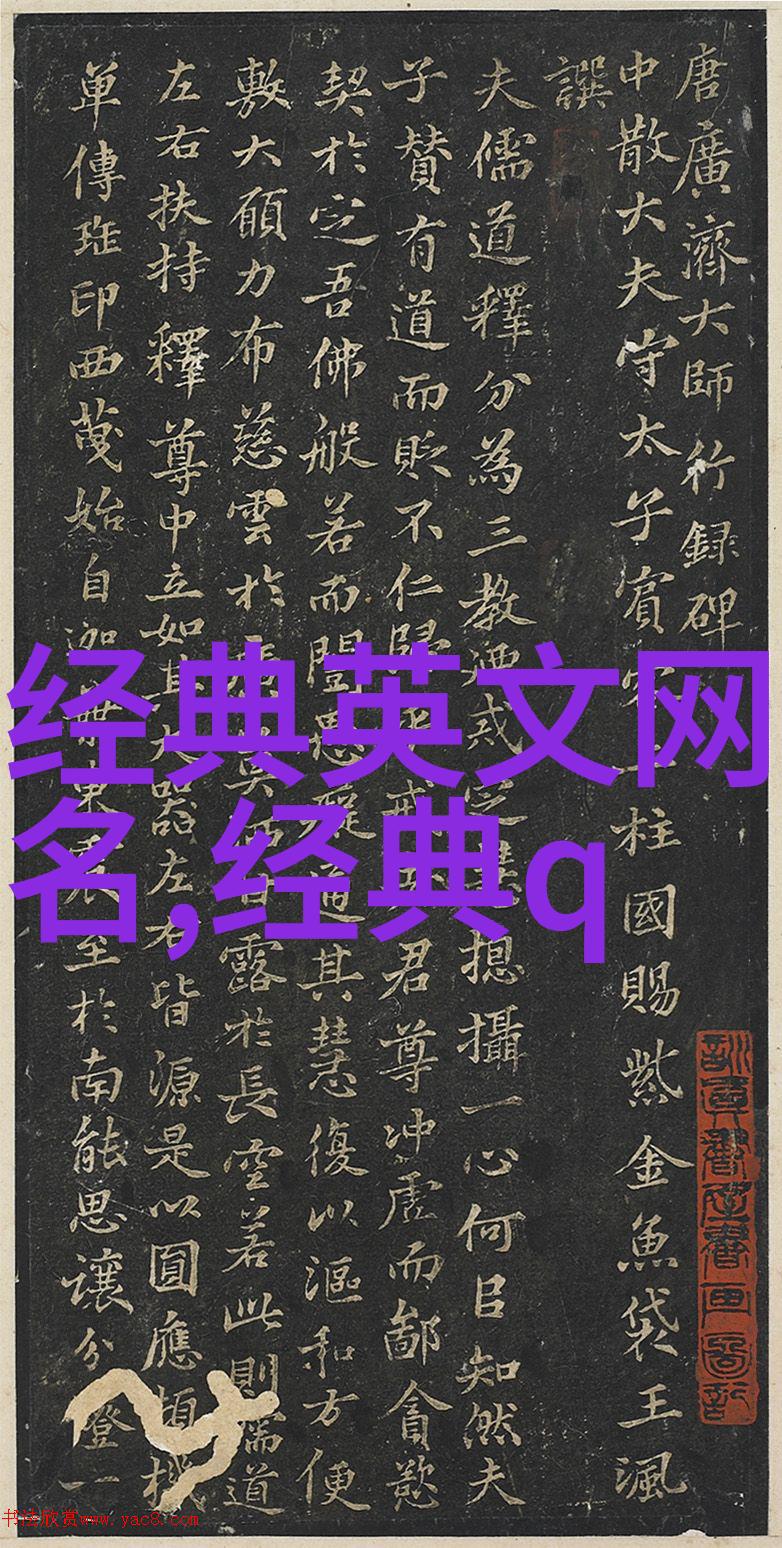 唐廣濟大師行録碑
中散大夫守太子賓客上柱國賜紫金魚袋王諷
譔
夫儒道釋分為三教
揔攝一心何㠯知然夫
子賛有道而貶不仁歸
戒
君尊冲虛而鄙貪慾
契於㝎吾佛般若而闡
通其慧復以漚和方便
敷大願力布慈雲於
露於長空若此則儒道
左右扶持釋尊中立如
左右皆源是以圓應頓機
單傳
印西
始自迦
至於南能思讓分燈一
经典英文网
名,经典q
书法欣赏www.yac8.com